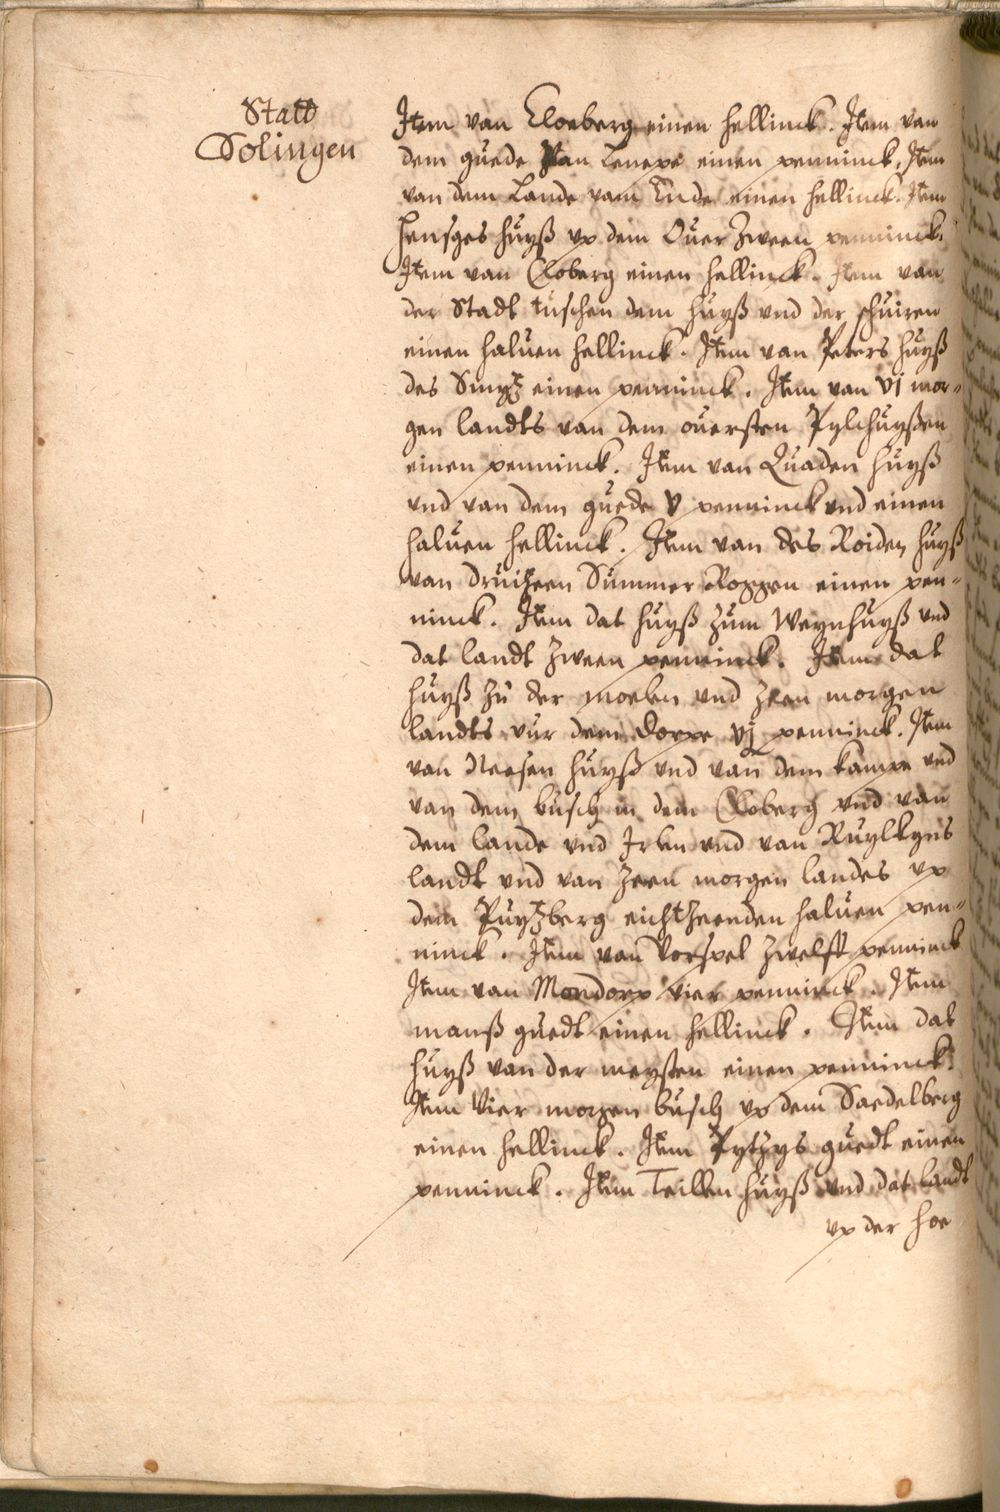 Statt
Solingen
Item van Cloeberg einen hellinck. Item van
dem guede van Lenepe einen penninck, Item
van dem Lande vam Ende einen hellinck. Item
Hensges huyß vp dem Ouer zween penninck.
Item van Cloberg einen hellinck. Item van
der Stadt tuschen dem huyß vnd der schuiren
einen haluen hellinck. Item van Peters huyß
des Smytz einen penninck. Item van vj mor-
gen landts van dem ouersten Pylchuyßen
einen penninck. Item van Quaden huyß
vnd van dem guede v penninck vnd einen
haluen hellinck. Item van des Roiden huyß
van druitzeen Summer Roggen einen pen-
ninck. Item dat huyß zum Weynhuyß vnd
dat landt zween penninck. Item dat
huyß zu der moelen vnd zeen morgen
landts vur dem Dorpe vj penninck. Item
van Neesen huyß vnd van dem kampe vnd
van dem busch in dem Cloberg vnd van
dem lande vnd Irlen vnd van Ruylkyns
landt vnd van zeen morgen landes vp
dem Puytzberg eichtzeenden haluen pen-
ninck. Item van Vorspel zwelff penninck
Item van Mondorp vier penninck. Item
manß guedt einen hellinck. Item dat
huyß van der meysten einen penninck.
Item Vier morgen busch vp dem Saedelberg
einen hellinck. Item Pytzys guedt einen
penninck. Item Teillen huyß vnd dat landt
vp der hoe